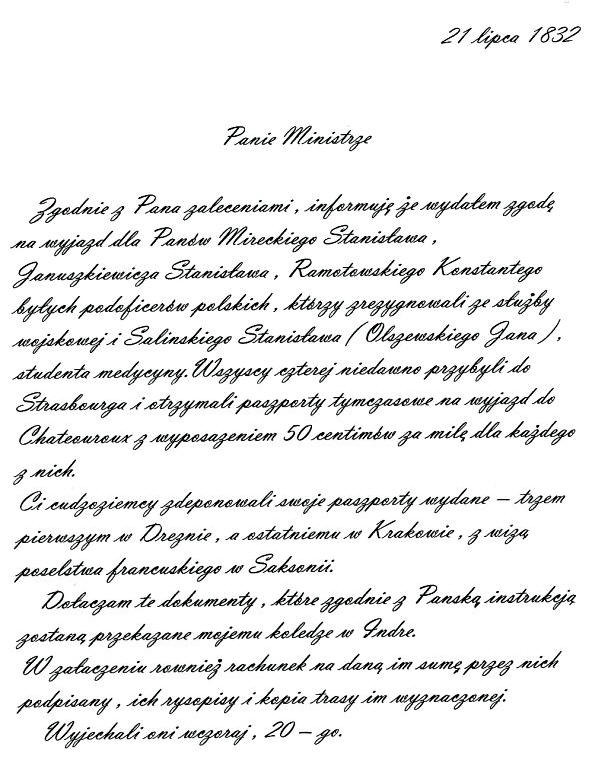 21 lipca 1832
Panie Ministrze
Zgodnie z Pana zaleceniami, informuję że wydałem zgodę
na wyjazd dla Panów Mireckiego Stanisława,
Januszkiewicza Stanisława, Ramotowskiego Konstantego
byłych podoficerów polskich, którzy zrezygnowali ze służby
wojskowej i Salinskiego Stanisława (Olszewskiego Jana),
studenta medycyny. Wszyscy czterej niedawno przybyli do
Strasbourga i otrzymali paszporty tymczasowe na wyjazd do
Chateouroux z wyposazeniem 50 centimów za milę dla każdego
z nich.
Ci cudzoziemcy zdeponowali swoje paszporty wydane – trzem
pierwszym w Dreznie, a ostatniemu w Krakowie, z wizą
poselstwa francuskiego w Saksonii.
Dołaczam te dokumenty, które zgodnie z Panską instrukcją
zostaną przekazane mojemu koledze w Indre.
W załaczeniu rownież rachunek na daną im sumę przez nich
podpisany, ich rysopisy i kopia trasy im wyznaczonej.
Wyjechali oni wczoraj, 20 – go.